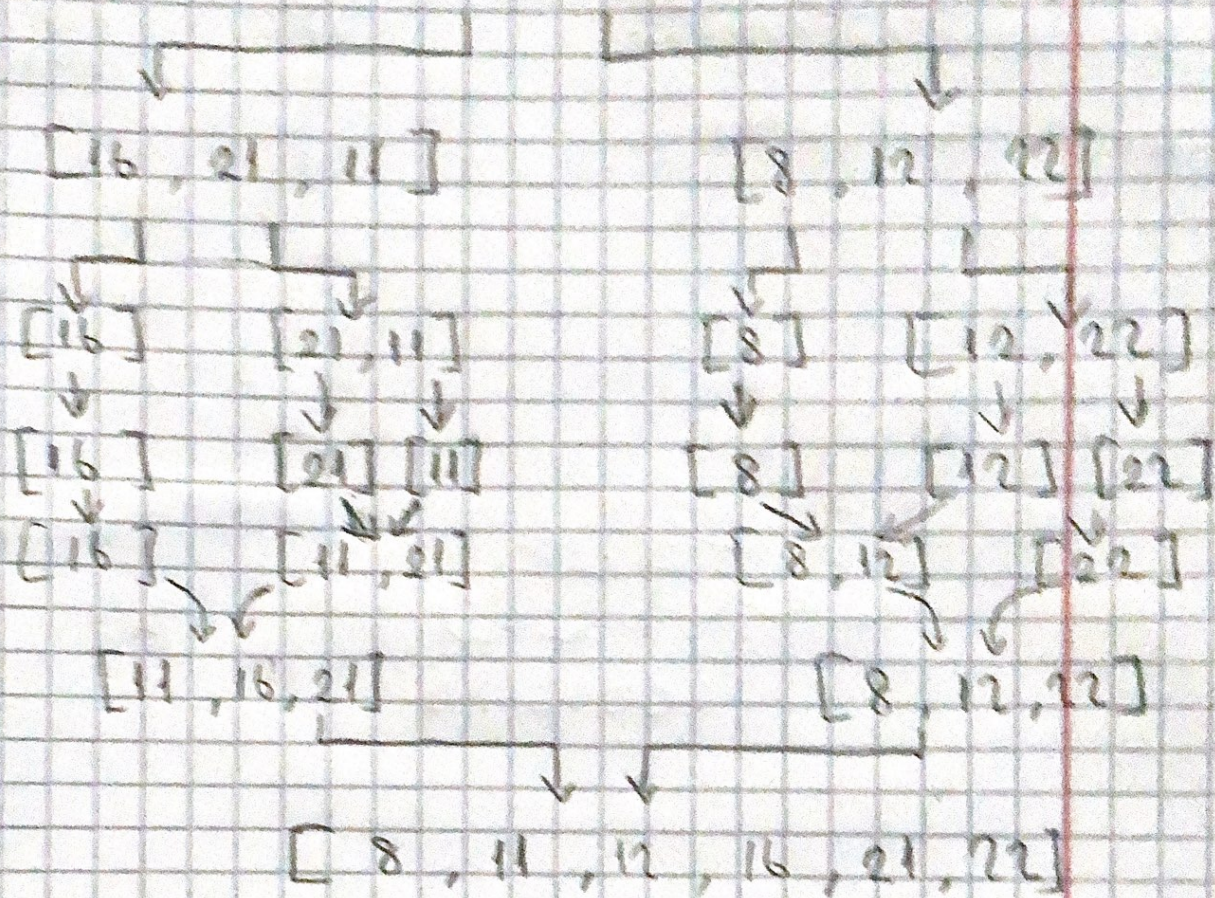 [16, 21, 11] [8, 12, 22]
[16] [21, 11] [8] [12, 22]
[16] [21] [11] [8] [12] [22]
[16] [11, 21] [8, 12] [22]
[11, 16, 21] [8, 12, 22]
[8, 11, 12, 16, 21, 22]